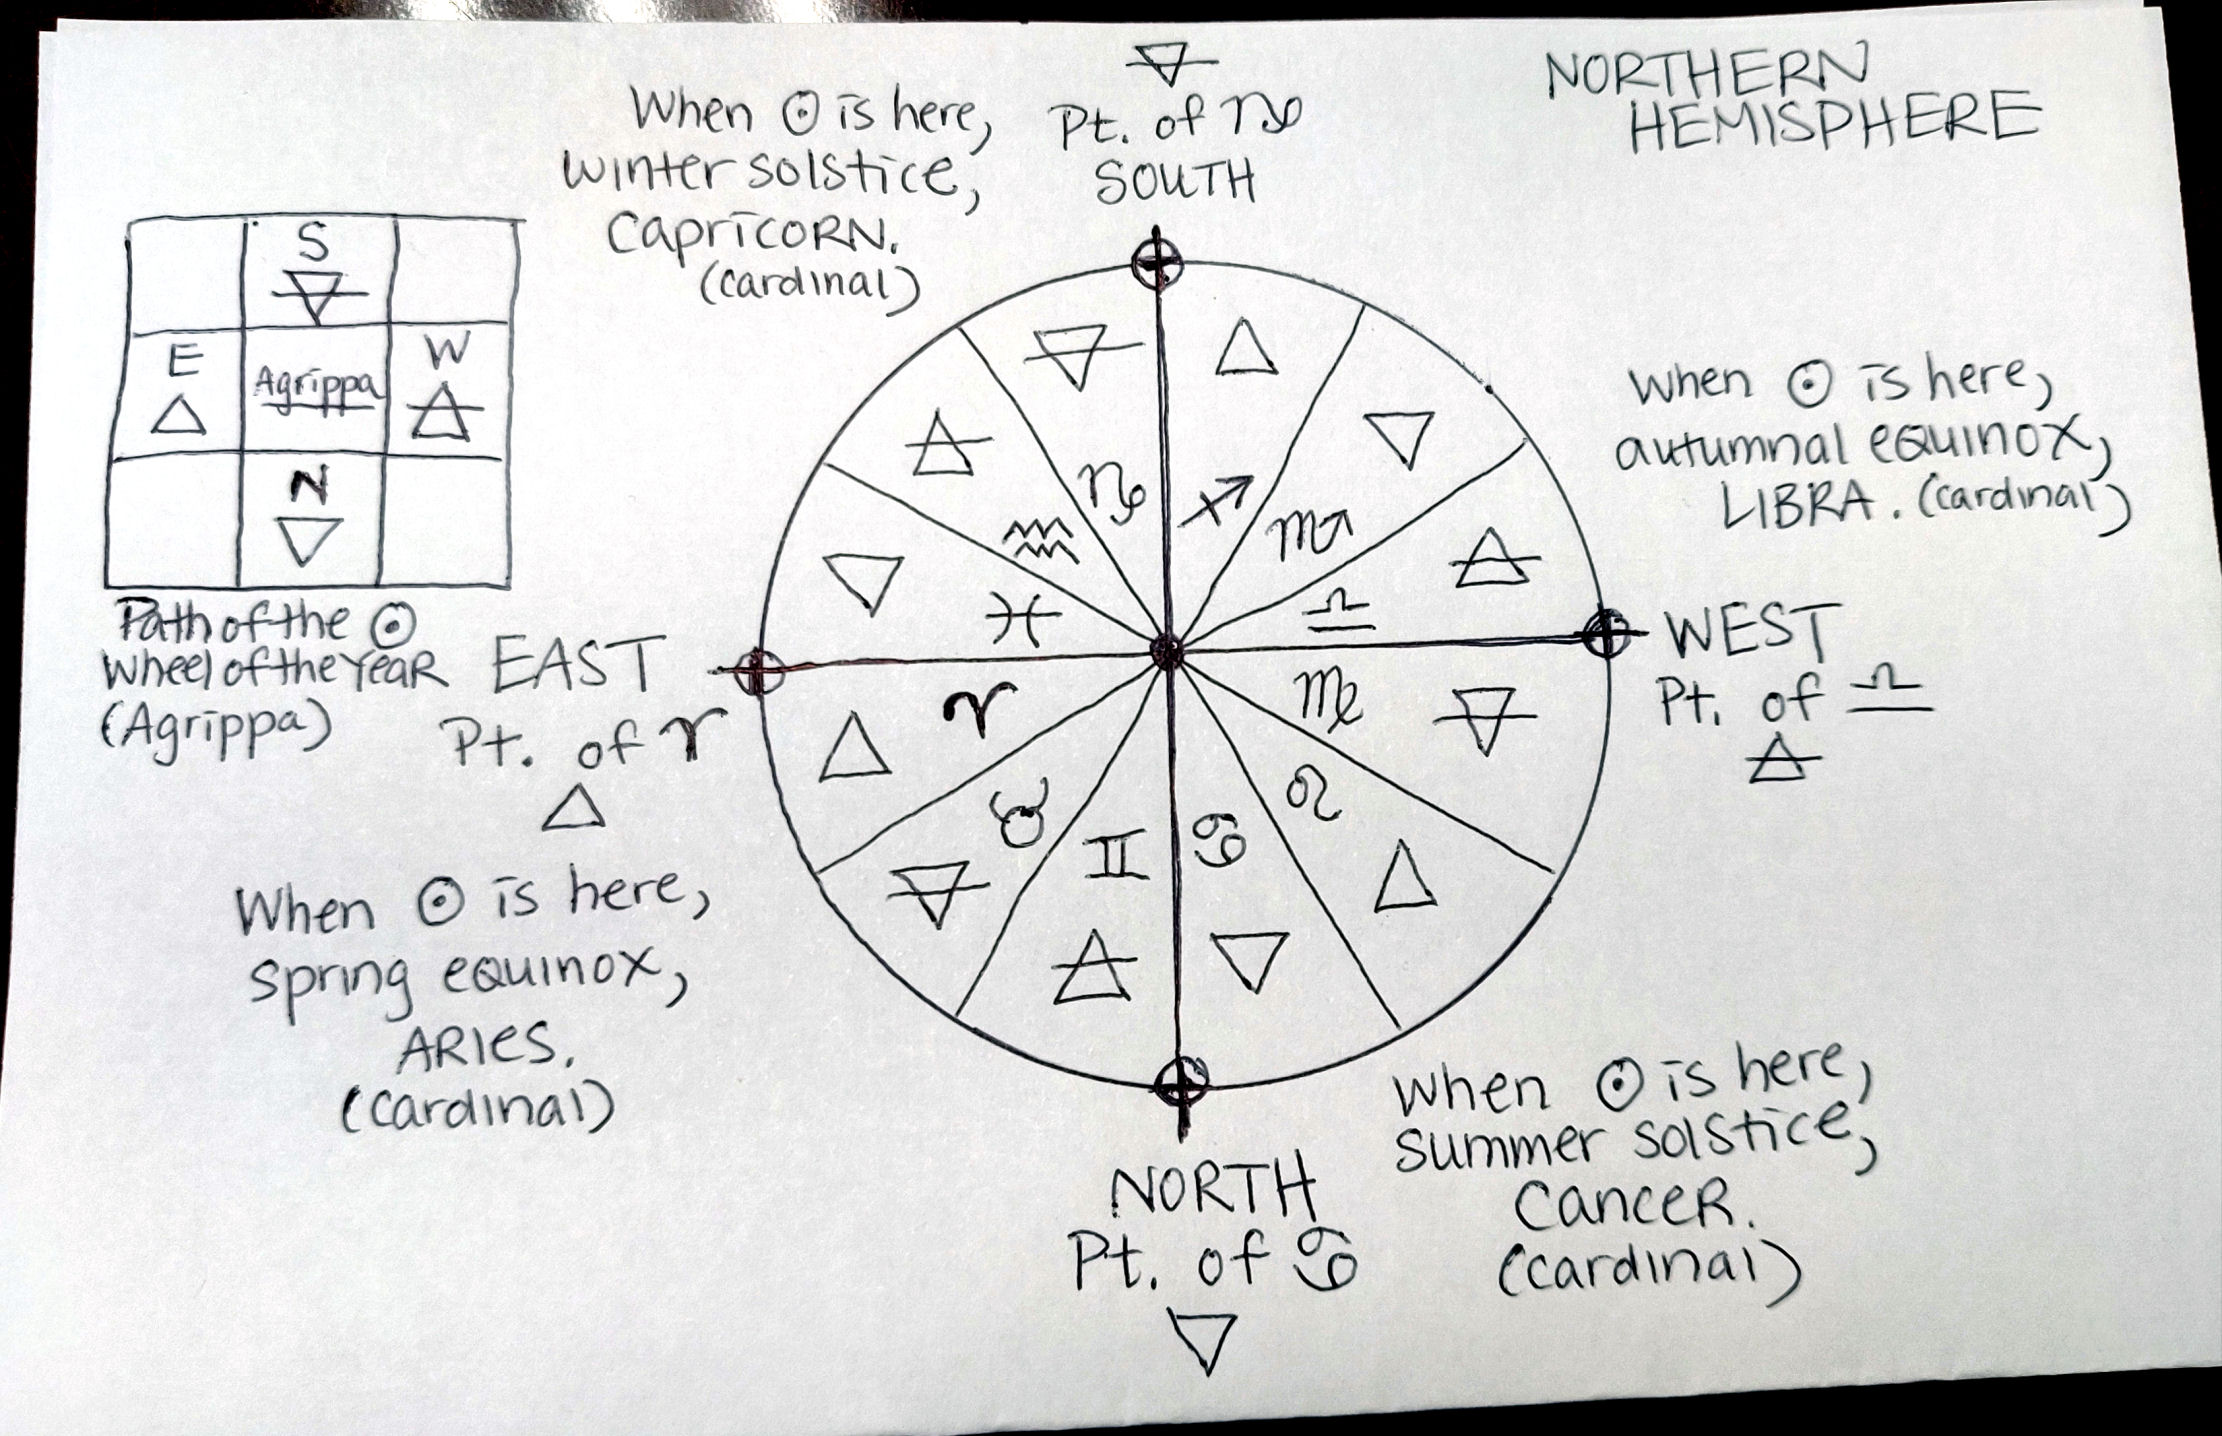 NORTHERN
HEMISPHERE
🜃
Pt. of ♑
SOUTH
When ☉ is here,
winter solstice,
CAPRICORN.
(cardinal)
S
🜃
E
🜂
Agrippa
W
🜁
N
🜄
Path of the ☉
Wheel of the Year
(Agrippa)
When ☉ is here,
autumnal equinox,
LIBRA. (cardinal)
WEST
Pt. of ♎
🜁
EAST
Pt. of ♈
🜂
When ☉ is here,
spring equinox,
ARIES.
(cardinal)
🜃 ♑
🜂 ♐
🜄 ♏
🜁 ♎
🜃 ♍
🜂 ♌
🜄 ♋
🜁 ♊
🜃 ♉
🜂 ♈
🜄 ♓
🜁 ♒
NORTH
Pt. of ♋
🜄
When ☉ is here,
summer solstice,
CANCER.
(cardinal)